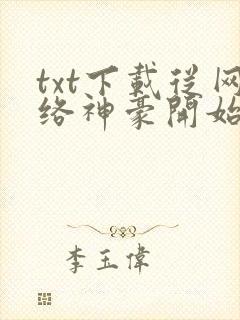 txt下載從网
络神豪開始
李玉偉